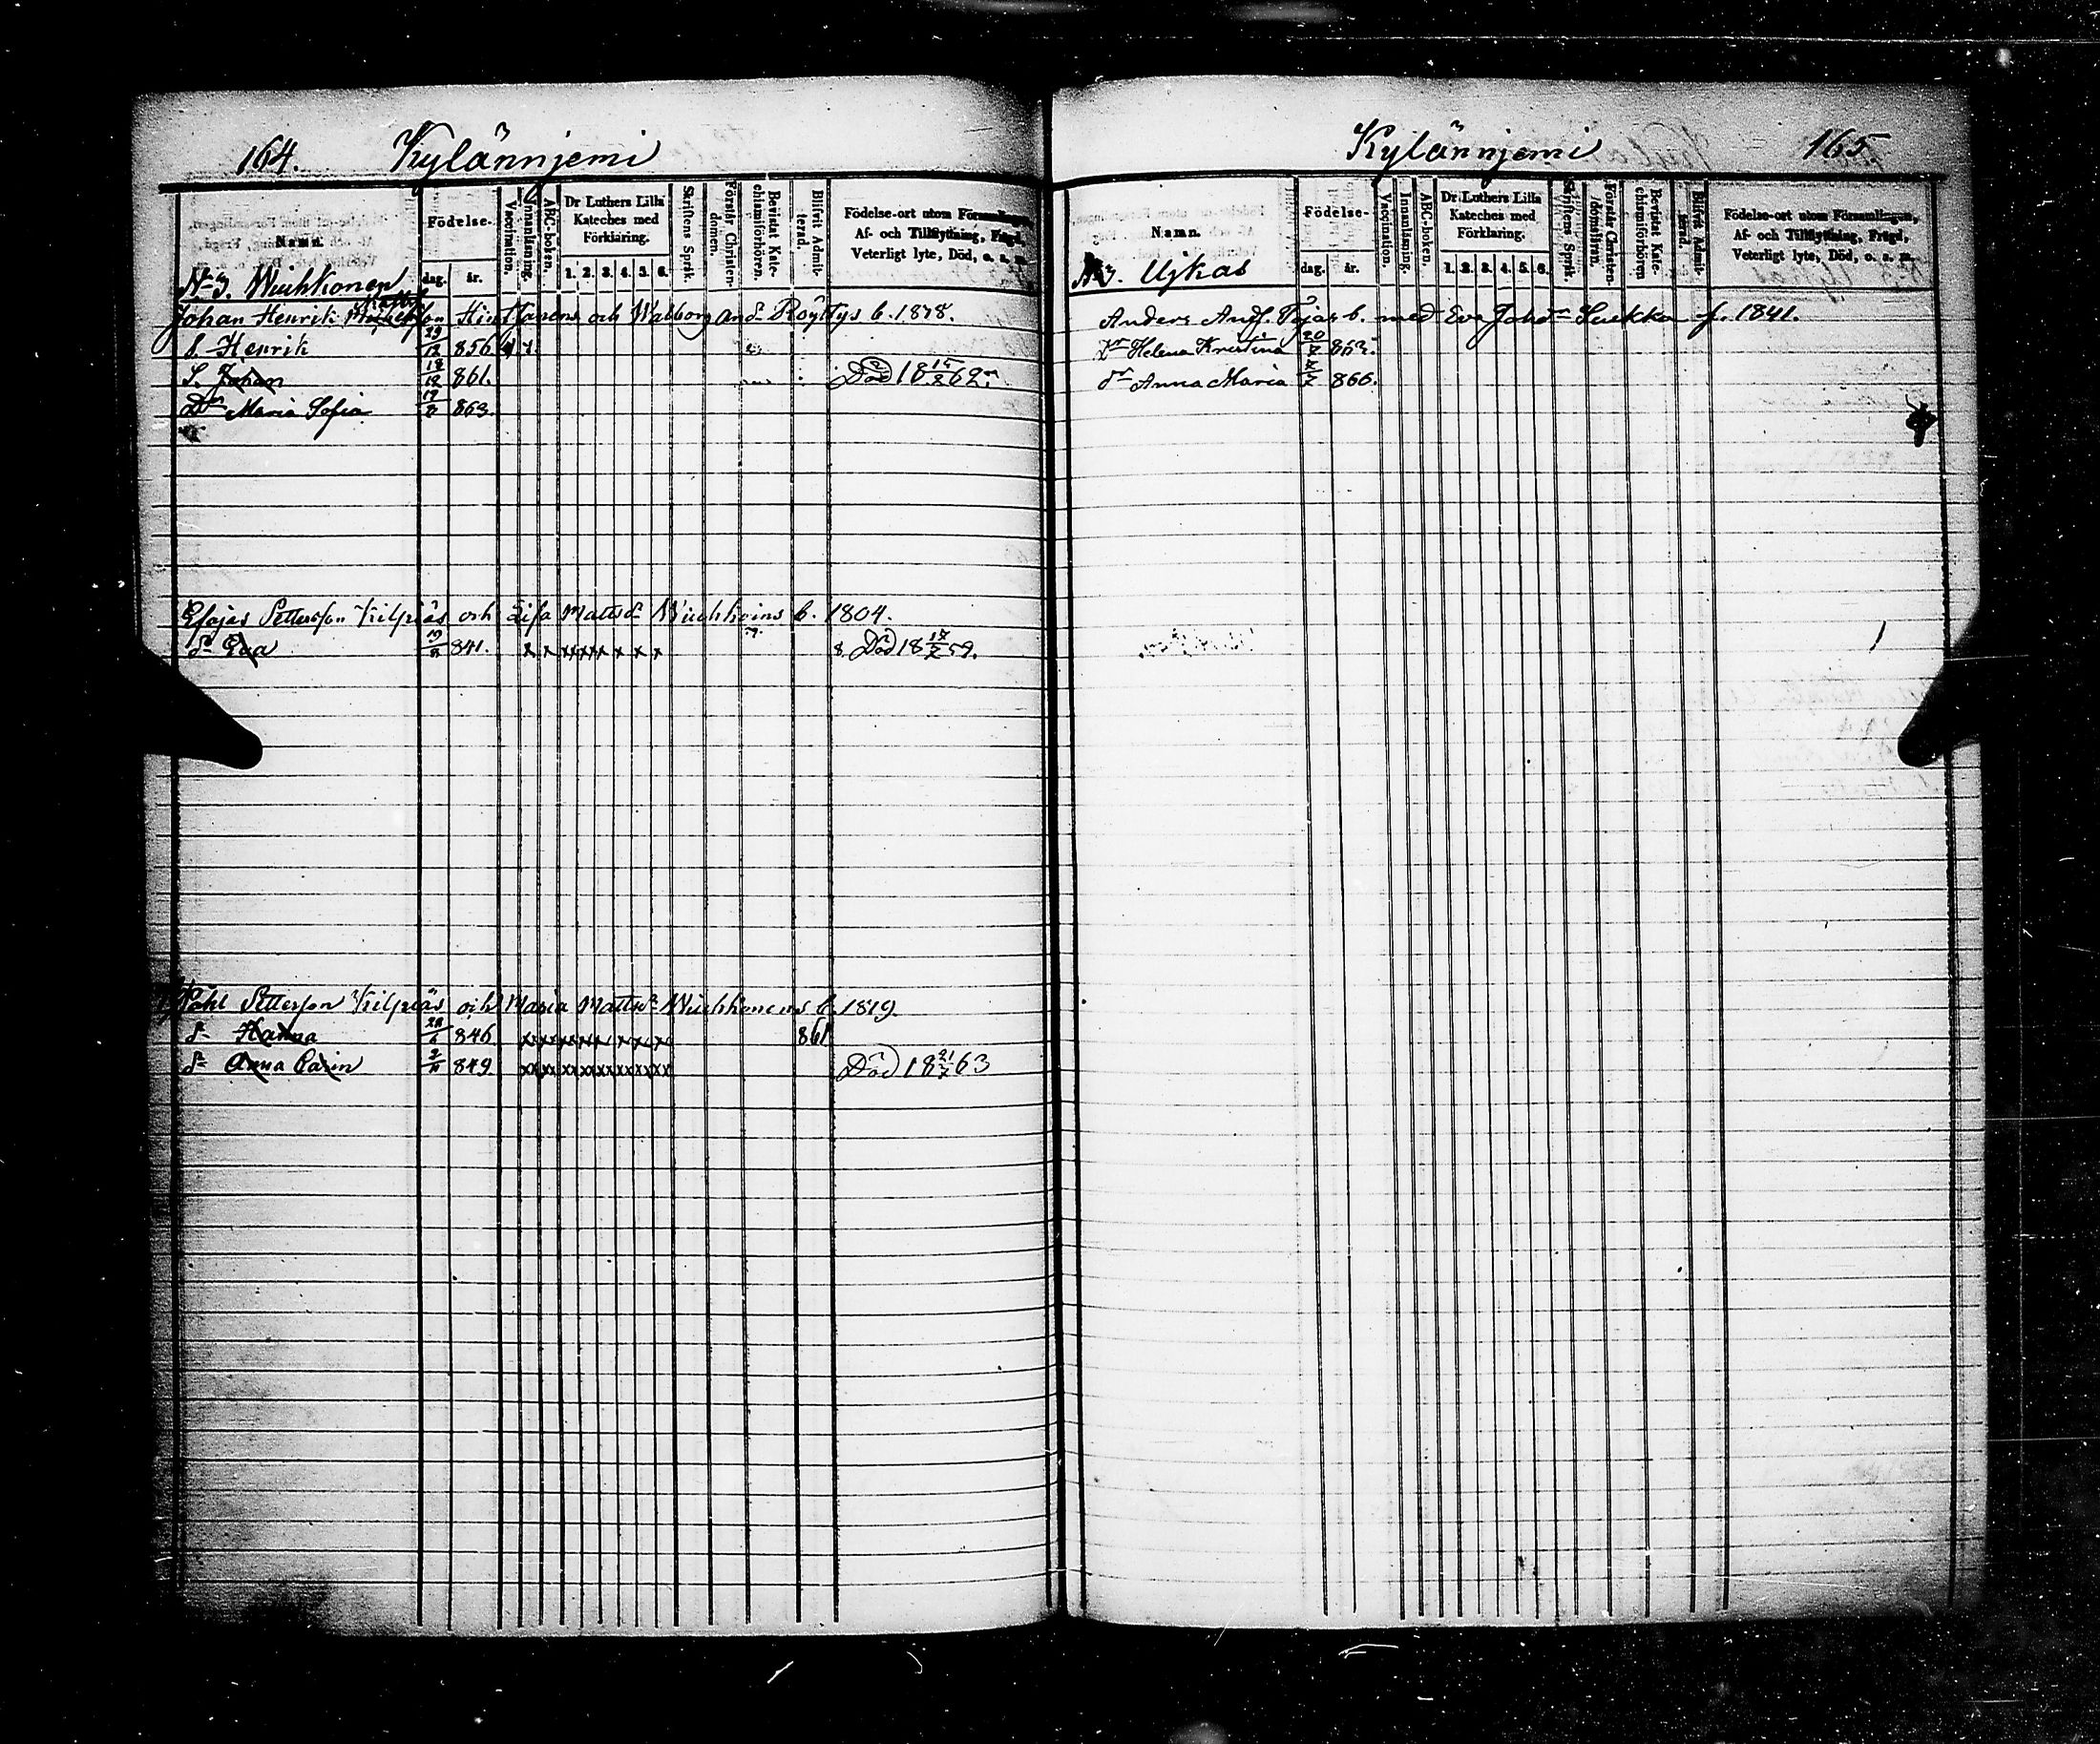 164. Kylännjemi
Namn.
Födelse-
dag. år.
Vaccination.
Innanläsning.
ABC-boken.
Dr Luthers Lilla Kateches med Förklaring.
1. 2. 3. 4. 5. 6.
Skriftens Språk.
Förstår Christendomen.
Bevistat Katechismiförhören.
Blifvit Admitterad.
Födelse-ort utom Församlingen, Af- och Tillflyttning, Frägd, Veterligt lyte, Död, o. s. m.
No 3. Wiuhkonen
Johan Henrik och Walborg And.dr Röyttys b. 1878.
S. Henrik 29/12 856
S. Johan 18/12 861. Död 18 15/2 62.
Dr Maria Sofia 863.
Esajas Pettersson Kilpiäs och Lisa Matts dr Wiuhkoins b. 1804.
dr Eva 19/8 841. x x xxxxx x x x 8. Död 18 59.
Påhl Pettersson Kilpiäs och Maria Mattsdr Wiuhkonens b. 1819.
dr Hanna 846 861
dr Anna Carin 2/11 849 Död 18 21/7 63
Kylännjemi 165
Namn.
Födelse-
dag. år.
Vaccination.
Innanläsning.
ABC-boken.
Dr Luthers Lilla Kateches med Förklaring.
1. 2. 3. 4. 5. 6.
Skriftens Språk.
Bevistat Katechismiförhören
Blifvit Admitterad.
Födelse-ort utom Församlingen, Af- och Tillflyttning, Frägd, Veterligt lyte, Död, o. s. m.
No 3. Ujkas
Anders Andf. Pojas b. med Eva Johdr Suikka f. 1841.
Dr Helena Kristina 20/7 863.
dr Anna Maria 866.